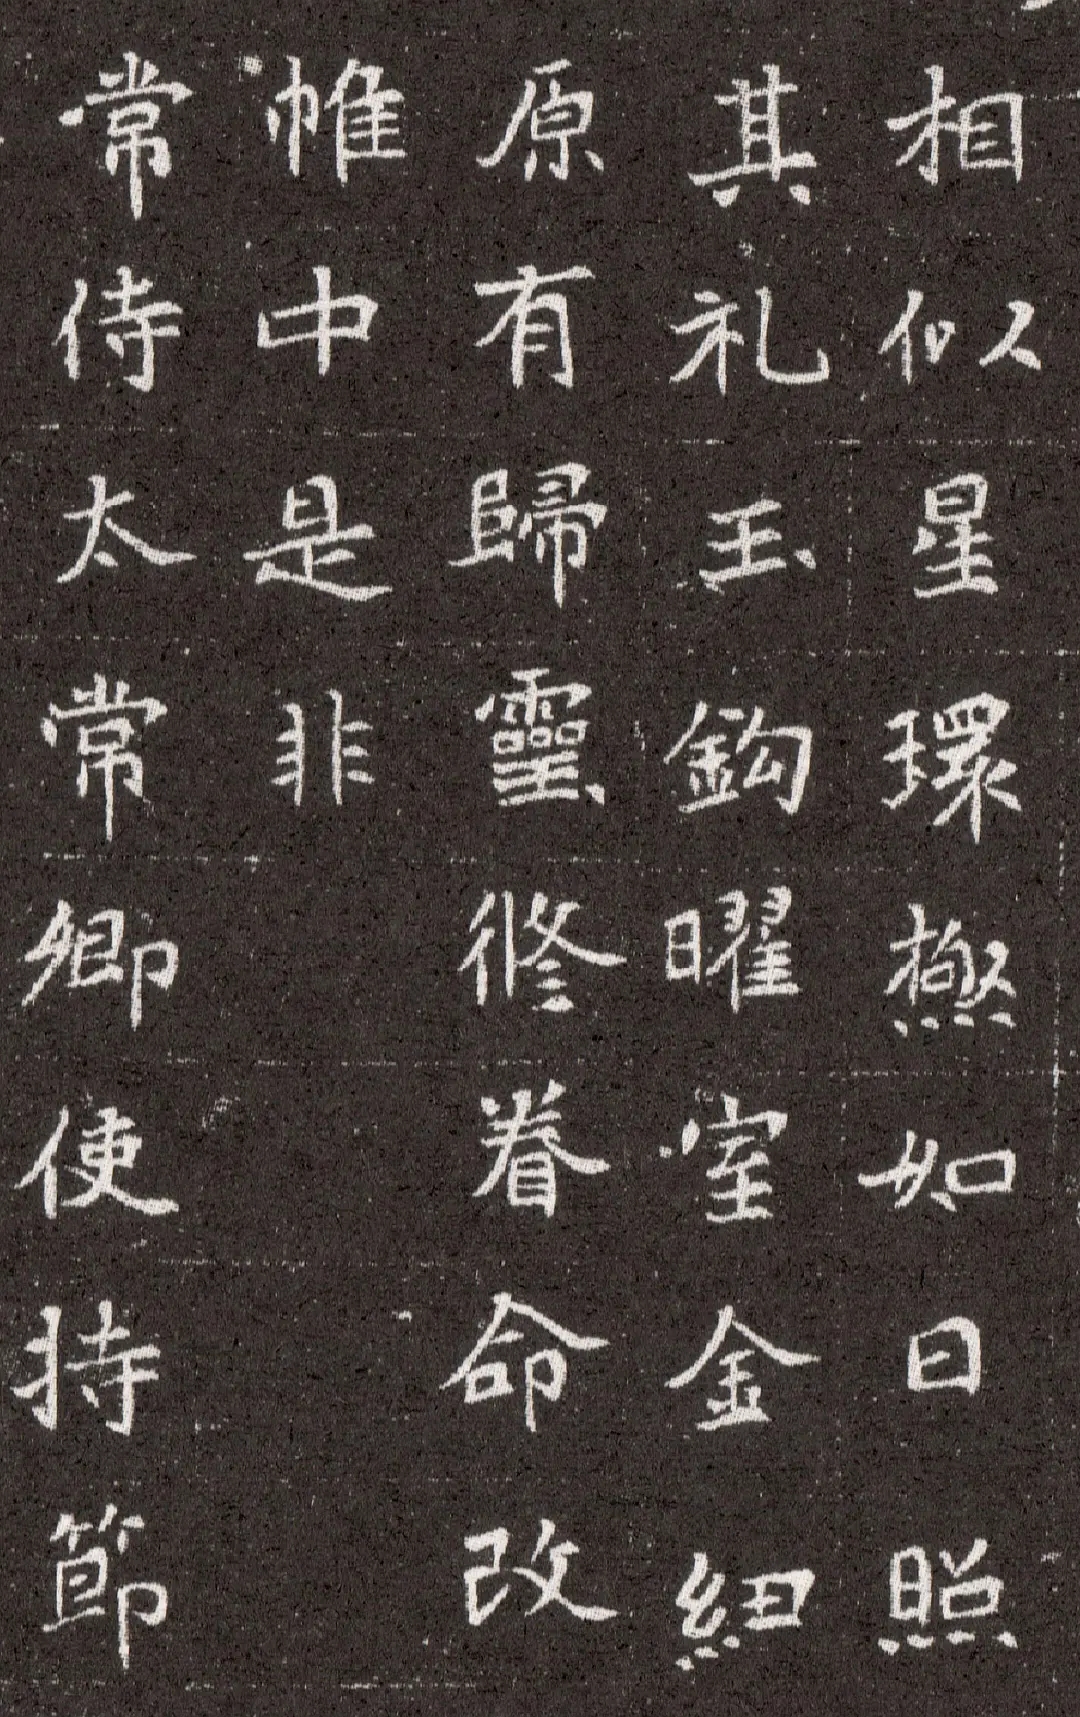 相似星環極如日照
其礼玉鈎曜室金紐
原有歸靈修眷命改
帷中是非
常侍太常卿使持節